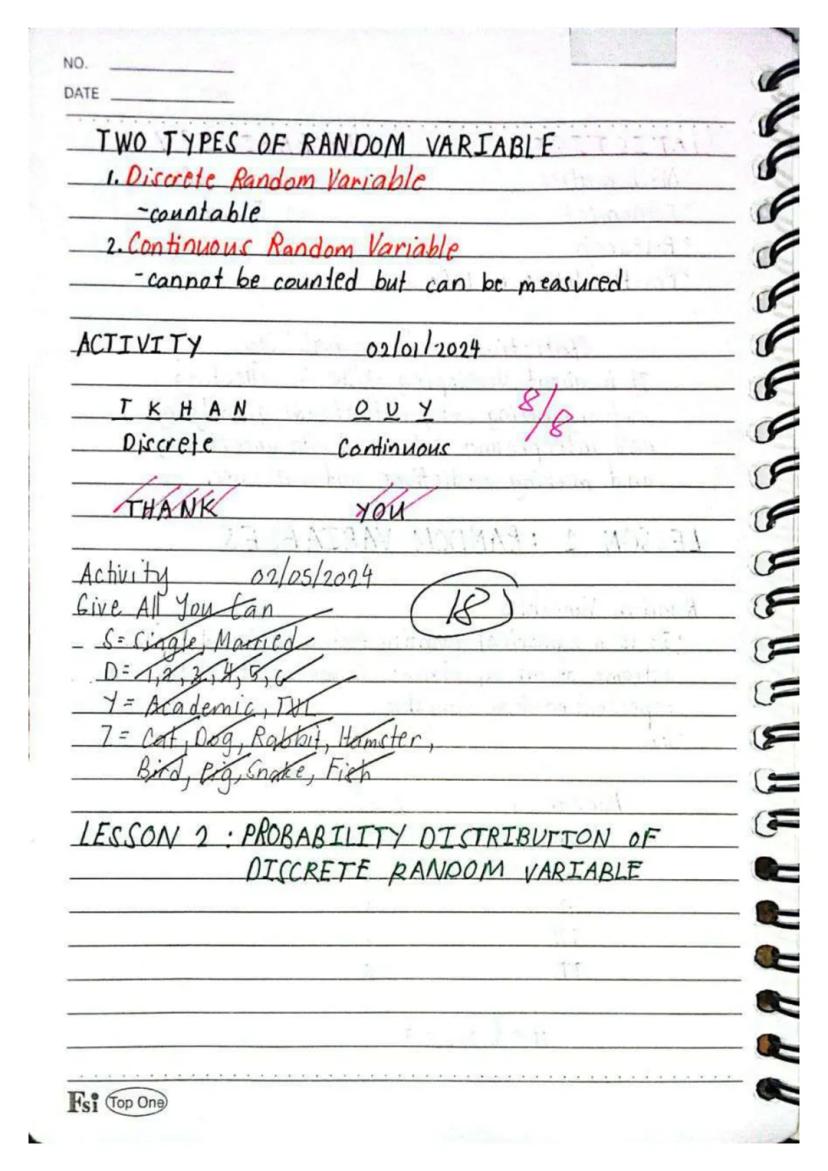 NO.
DATE
TWO TYPES OF RANDOM VARIABLE
1. Discrete Random Variable
-countable
2. Continuous Random Variable
-cannot be counted but can be measured
ACTIVITY 02/01/2024
T K H A N O U Y 8/8
Discrete Continuous
THANK YOU
Activity 02/05/2024
Give All You Can 18
S = Single, Married
D = 1, 2, 3, 4, 5, 6
Y = Academic, TVL
Z = Cat, Dog, Rabbit, Hamster,
Bird, Pig, Snake, Fish
LESSON 2 : PROBABILITY DISTRIBUTION OF
DISCRETE RANDOM VARIABLE
Fsi Top One